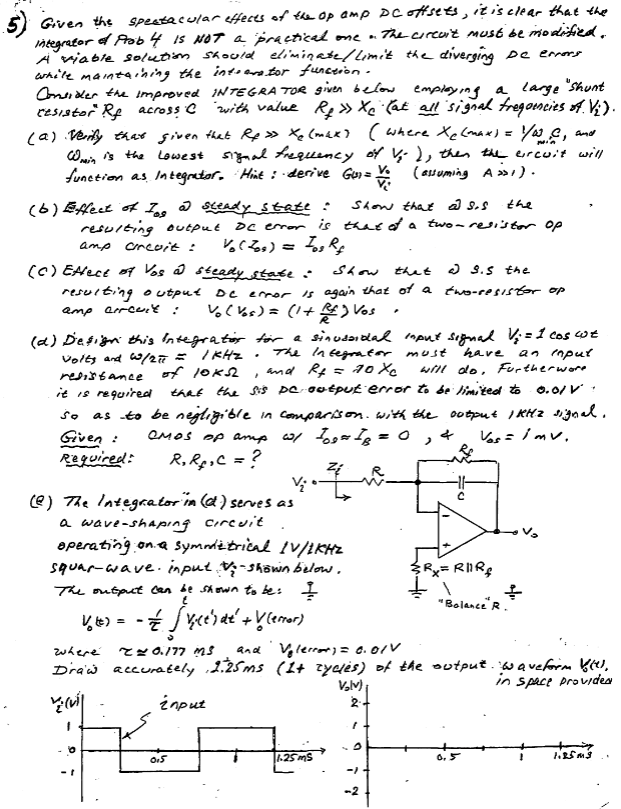 5) Given the spectacular effects of the op amp DC offsets, it is clear that the
integrator of Prob 4 is NOT a practical one. The circuit must be modified.
A viable solution should eliminate/limit the diverging DC errors
while maintaining the integrator function.
Consider the improved INTEGRATOR given below employing a large "shunt
resistor" Rf across C with value Rf >> Xc (at all signal frequencies of Vi).
(a) Verify that given that Rf >> Xc(max) (where Xc(max) = 1/ωmin C, and
ωmin is the lowest signal frequency of Vi), then the circuit will
function as Integrator. Hint: derive G(s) = Vo/Vi (assuming A>>1).
(b) Effect of Ios @ steady state: Show that @ s.s the
resulting output DC error is that of a two-resistor op
amp circuit: Vo(Ios) = Ios Rf
(c) Effect of Vos @ steady state: Show that @ s.s the
resulting output DC error is again that of a two-resistor op
amp circuit: Vo(Vos) = (1 + Rf/R) Vos.
(d) Design this Integrator for a sinusoidal input signal Vi = 1 cos ωt
volts and ω/2π = 1KHz. The Integrator must have an input
resistance of 10KΩ, and Rf = 10 Xc will do. Furthermore
it is required that the s.s DC output error to be limited to 0.01V
so as to be negligible in comparison with the output 1KHz signal.
Given: CMOS op amp w/ Ios ≈ IB = 0, & Vos = 1 mV.
Required: R, Rf, C = ?
Rf
Zi
R
Vi
C
-
+
Vo
Rx = R||Rf
"Balance" R.
(e) The Integrator in (d) serves as
a wave-shaping circuit
operating on a symmetrical 1V/1KHz
squar-wave input Vi shown below.
The output can be shown to be:
Vo(t) = - 1/τ ∫₀ᵗ Vi(t')dt' + Vo(error)
where τ ≈ 0.177 ms and Vo(error) = 0.01V
Draw accurately 1.25ms (1+ cycles) of the output waveform Vo(t),
in space provided
Vi(v)
input
1
0
-1
0.5
1
1.25ms
Vo(v)
2
1
0
-1
-2
0.5
1
1.25ms